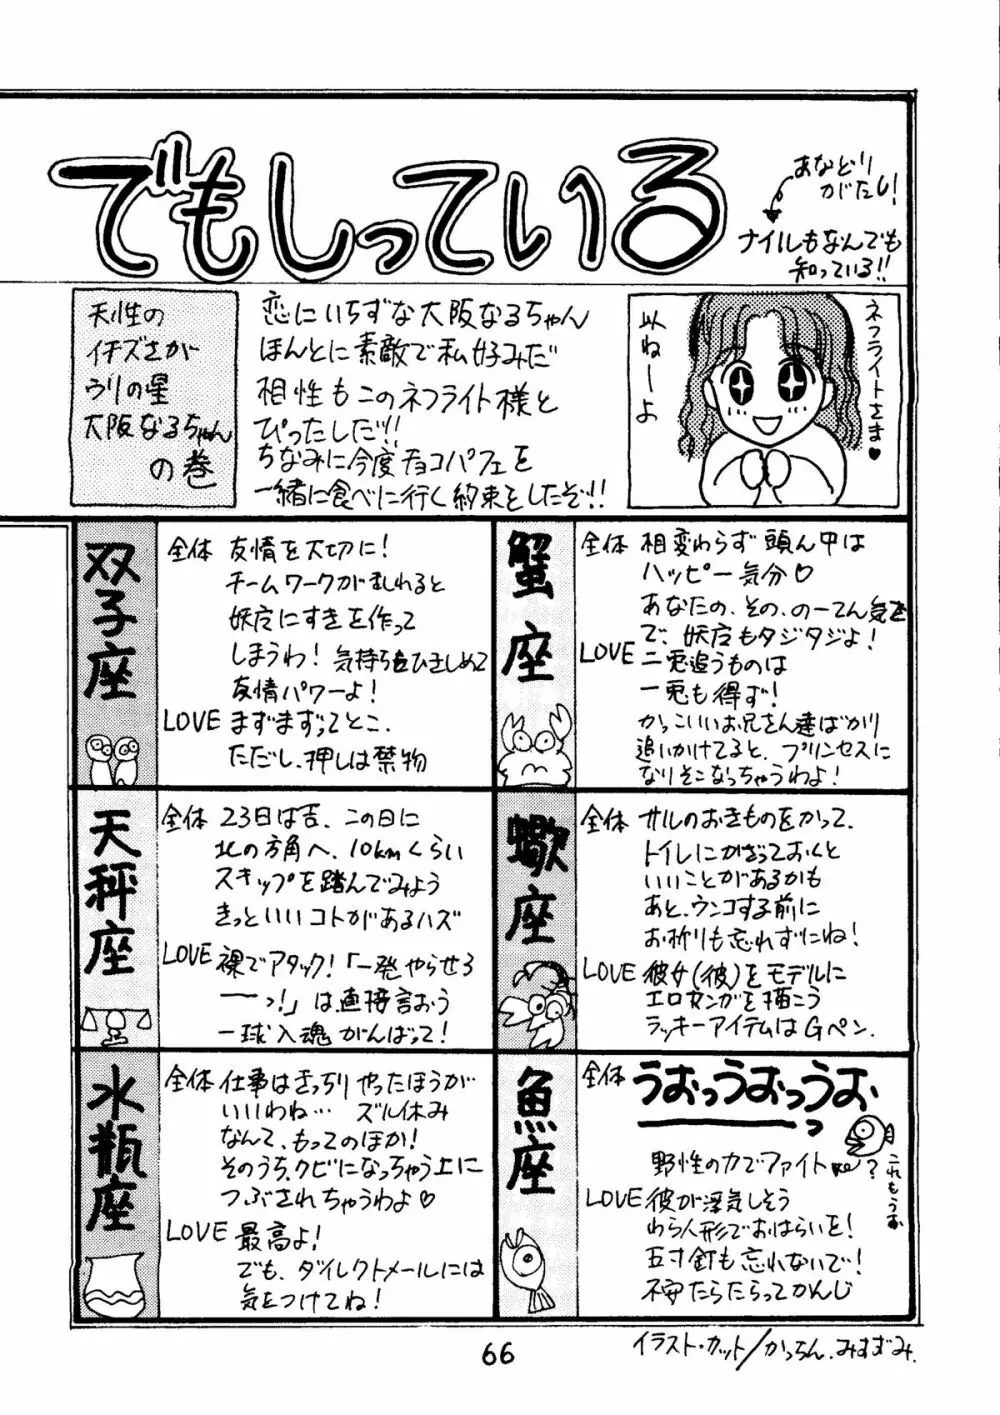 でもしっている
あなどり
がたし!
ナイルもなんでも
知っている!!
天性の
イチズさが
ウリの星
大阪なるちゃん
の巻
恋にいちずな大阪なるちゃん
ほんとに素敵で私好みだ
相性もこのネフライト様と
ぴったしだ!!
ちなみに今度チョコパフェを
一緒に食べに行く約束をしたぞ!!
ネフライトさま♥
以ねーよ
双子座
全体 友情を大切に!
チームワークが乱れると
妖魔にすきを作って
しまうわ! 気持ちをひきしめて
友情パワーよ!
LOVE まずまずってとこ。
ただし、押しは禁物
蟹座
全体 相変わらず頭ん中は
ハッピー気分♡
あなたの、その、のーてん気さ
で、妖魔もタジタジよ!
LOVE 二兎追うものは
一兎も得ず!
かっこいいお兄さん達ばかり
追いかけてると、プリンセスに
なりそこなっちゃうわよ!
天秤座
全体 23日は吉、この日に
北の方角へ、10kmくらい
スキップを踏んでみよう
きっといいコトがあるハズ
LOVE 裸でアタック!「一発やらせろ
ーっ!」は直接言おう
一球入魂がんばって!
蠍座
全体 サルのおきものをかって、
トイレにかざっておくと
いいことがあるかも
あと、ウンコする前に
お祈りも忘れずにね!
LOVE 彼女(彼)をモデルに
エロマンガを描こう
ラッキーアイテムはGペン.
水瓶座
全体 仕事はきっちりやったほうが
いいわね… ズル休み
なんて、もってのほか!
そのうち、クビになっちゃう上に
つぶされちゃうわよ♡
LOVE 最高よ!
でも、ダイレクトメールには
気をつけてね!
魚座
全体 うおっうおっうおっ
野性の力でファイト
?
これもうお
LOVE 彼が浮気しそう
わら人形でおはらいを!
五寸釘も忘れないで!
不安たらたらってかんじ
イラスト・カット/かっちん.みすずみ.
66